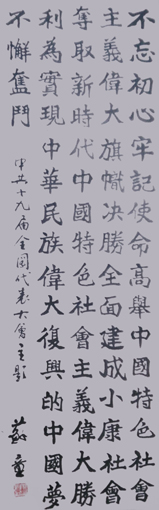 不忘初心牢記使命高舉中國特色社會
主義偉大旗幟決勝全面建成小康社會
奪取新時代中國特色社會主義偉大勝
利為實現中華民族偉大復興的中國夢
不懈奮鬥
中共十九届全國代表大會主題